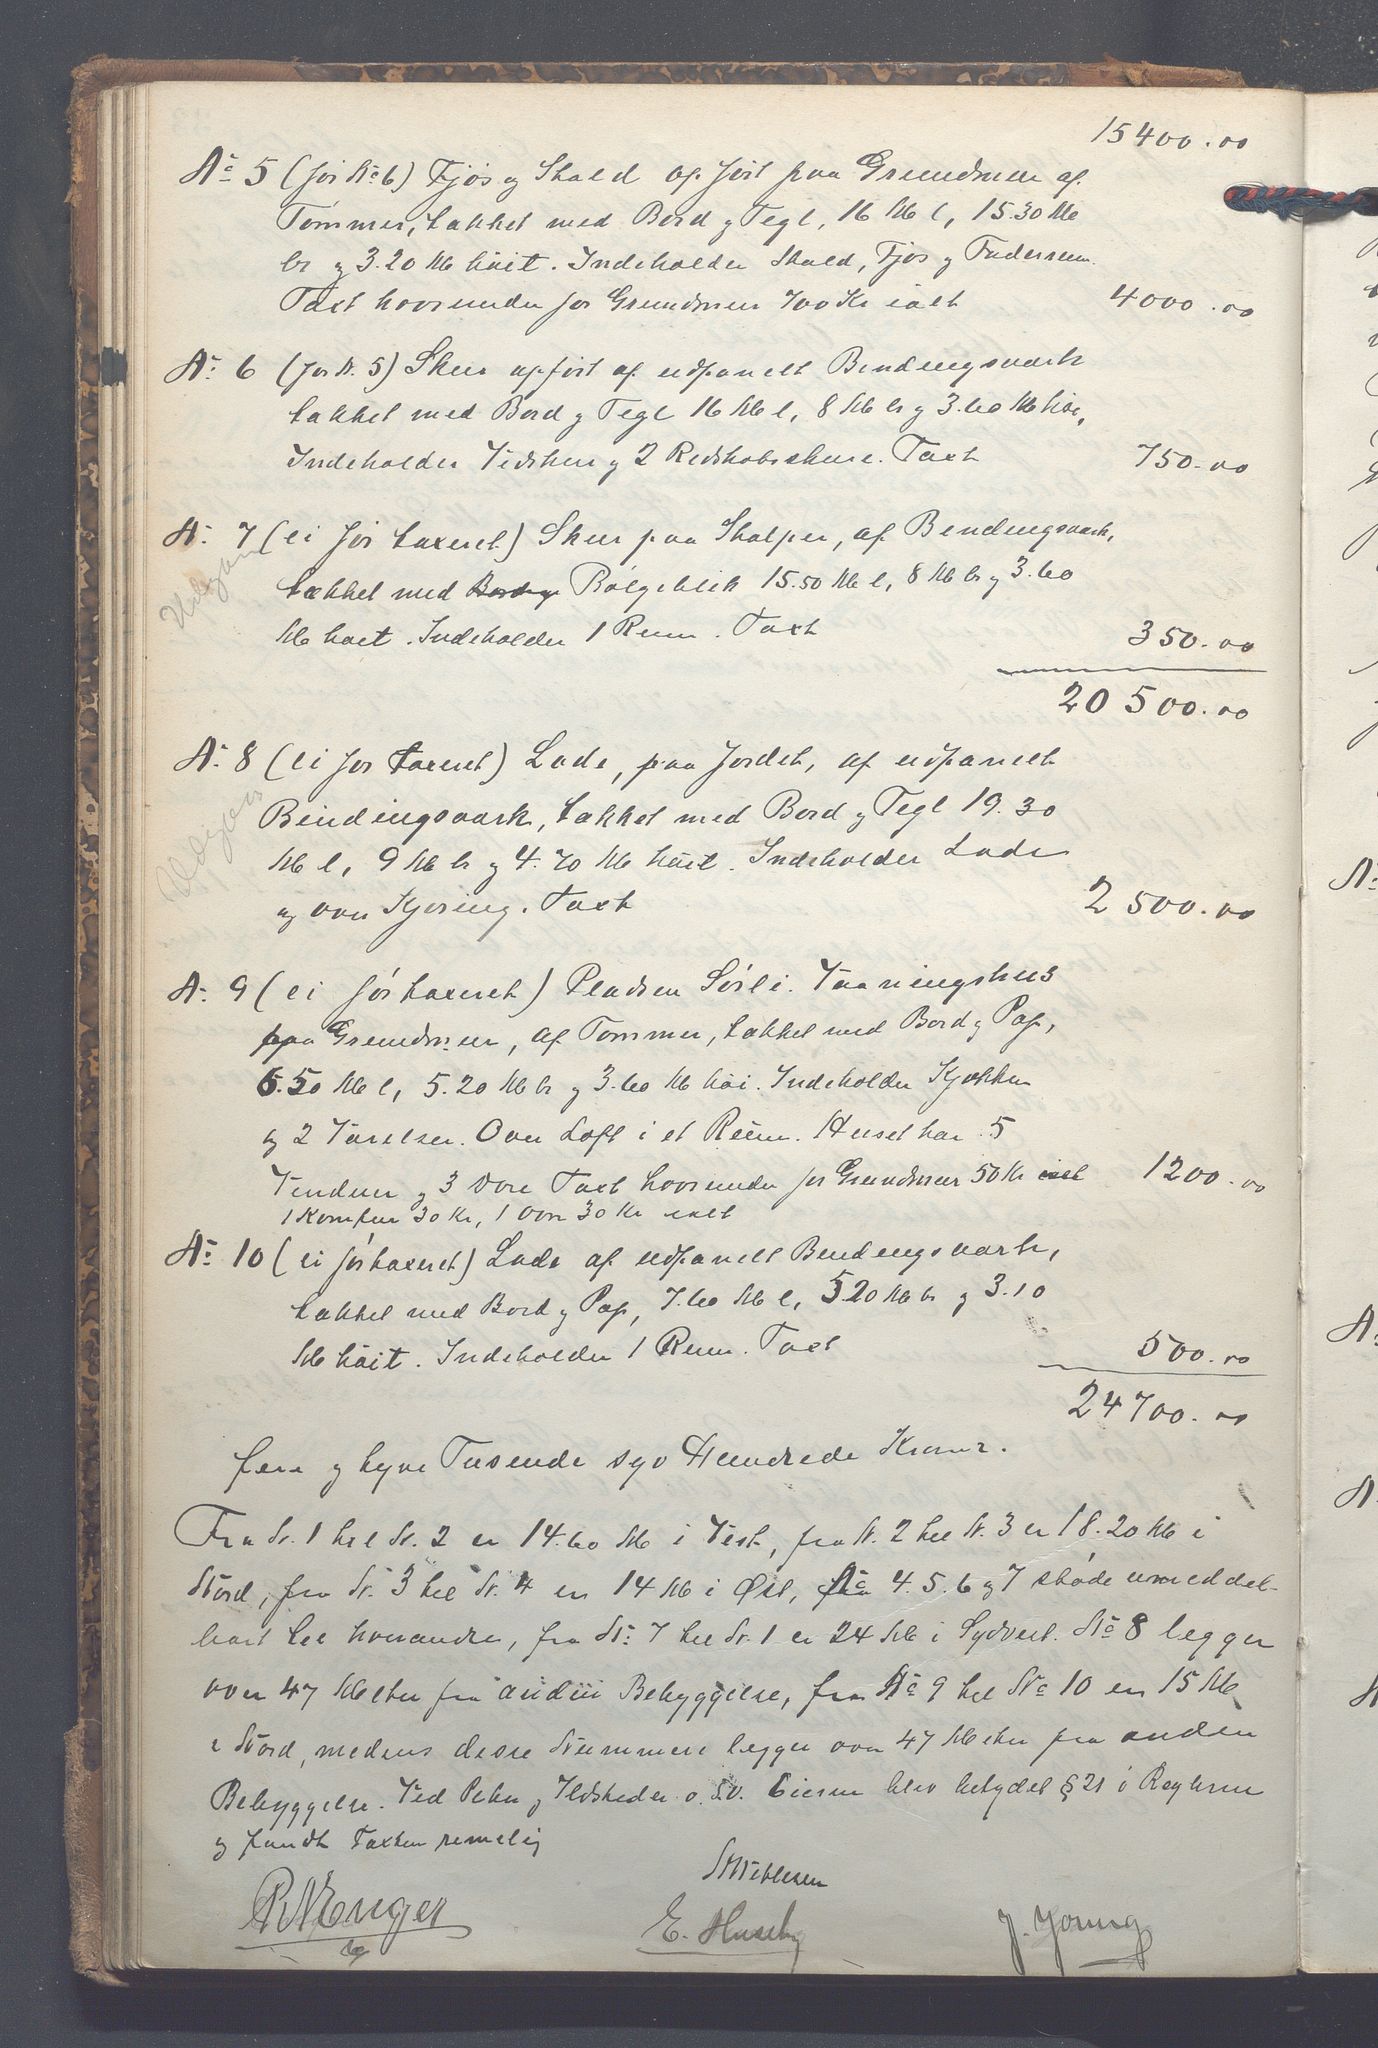 15400.00
No 5 (før No 6) Fjøs og Stald opført paa Grundmur af
Tømmer, tækket med Bord og Tegl, 16 M l, 15.30 M
br og 3.20 M høit. Indeholder Stald, Fjøs og Foderrum.
Taxt hvorunder for Grundmur 700 Kr ialt 4000.00
No 6 (før N. 5) Skur opført af udpanelt Bindingsværk
tækket med Bord og Tegl 16 M l, 8 M br og 3.60 M høi,
Indeholder Vedskur og 2 Redskabsskure. Taxt 750.00
N. 7 (ei før taxeret) Skur paa Stolper, af Bindingsværk,
Udgaar
tækket med Bord og Bølgeblik 15.50 M l, 8 M br og 3.60
M høit. Indeholder 1 Rum. Taxt 350.00
20500.00
N. 8 (ei før taxeret) Lade, paa Jordet, af udpanelt
Udgaar
Bindingsværk, tækket med Bord og Tegl 19.30
M l, 9 M br og 4.70 M høit. Indeholder Lade
og over Kjøring. Taxt 2500.00
N. 9 (ei før taxeret) Pladsen Sørli. Vaaningshus
paa Grundmur, af Tømmer, tækket med Bord og Pap,
6.50 M l, 5.20 M br og 3.60 M høi. Indeholder Kjøkken
og 2 Værelser. Over Loft i et Rum. Huset har 5
Vinduer og 3 Døre Taxt hvorunder for Grundmur 50 Kr ialt 1200.00
1 Komfur 30 Kr, 1 Ovn 30 Kr ialt
No 10 (ei før taxeret) Lade af udpanelt Bindingsværk,
tækket med Bord og Pap, 7.60 M l, 5.20 M br og 3.10
M høit. Indeholder 1 Rum. Taxt 500.00
24700.00
fire og tyve Tusende syv Hundrede Kroner.
Fra N. 1 til N. 2 er 14.60 M i Vest, fra N. 2 til N. 3 er 18.20 M i
Nord, fra N. 3 til N. 4 er 14 M i Øst, No 4. 5. 6 og 7 støde umiddel-
bart til hverandre, fra No 7 til N. 1 er 24 M i Sydvest. No 8 ligger
over 47 Meter fra anden Bebyggelse, fra No 9 til No 10 er 15 M
i Nord, medens disse Nummere ligger over 47 Meter fra anden
Bebyggelse. Ved Piber og Ildsteder o. s. v. Eieren blev betydet § 21 i
og fandt Taxten rimelig
R N Enger
E. Huseby
J. Joung